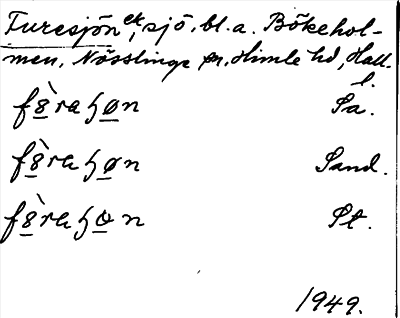 Furesjön ek, sjö, bl. a. Bökehol-
men, Nösslinge sn, Himle hd, Hall.
l.
fə̀raɧøn Sa.
fə̀raɧøn Sand.
fə̀raɧøn St.
1949.